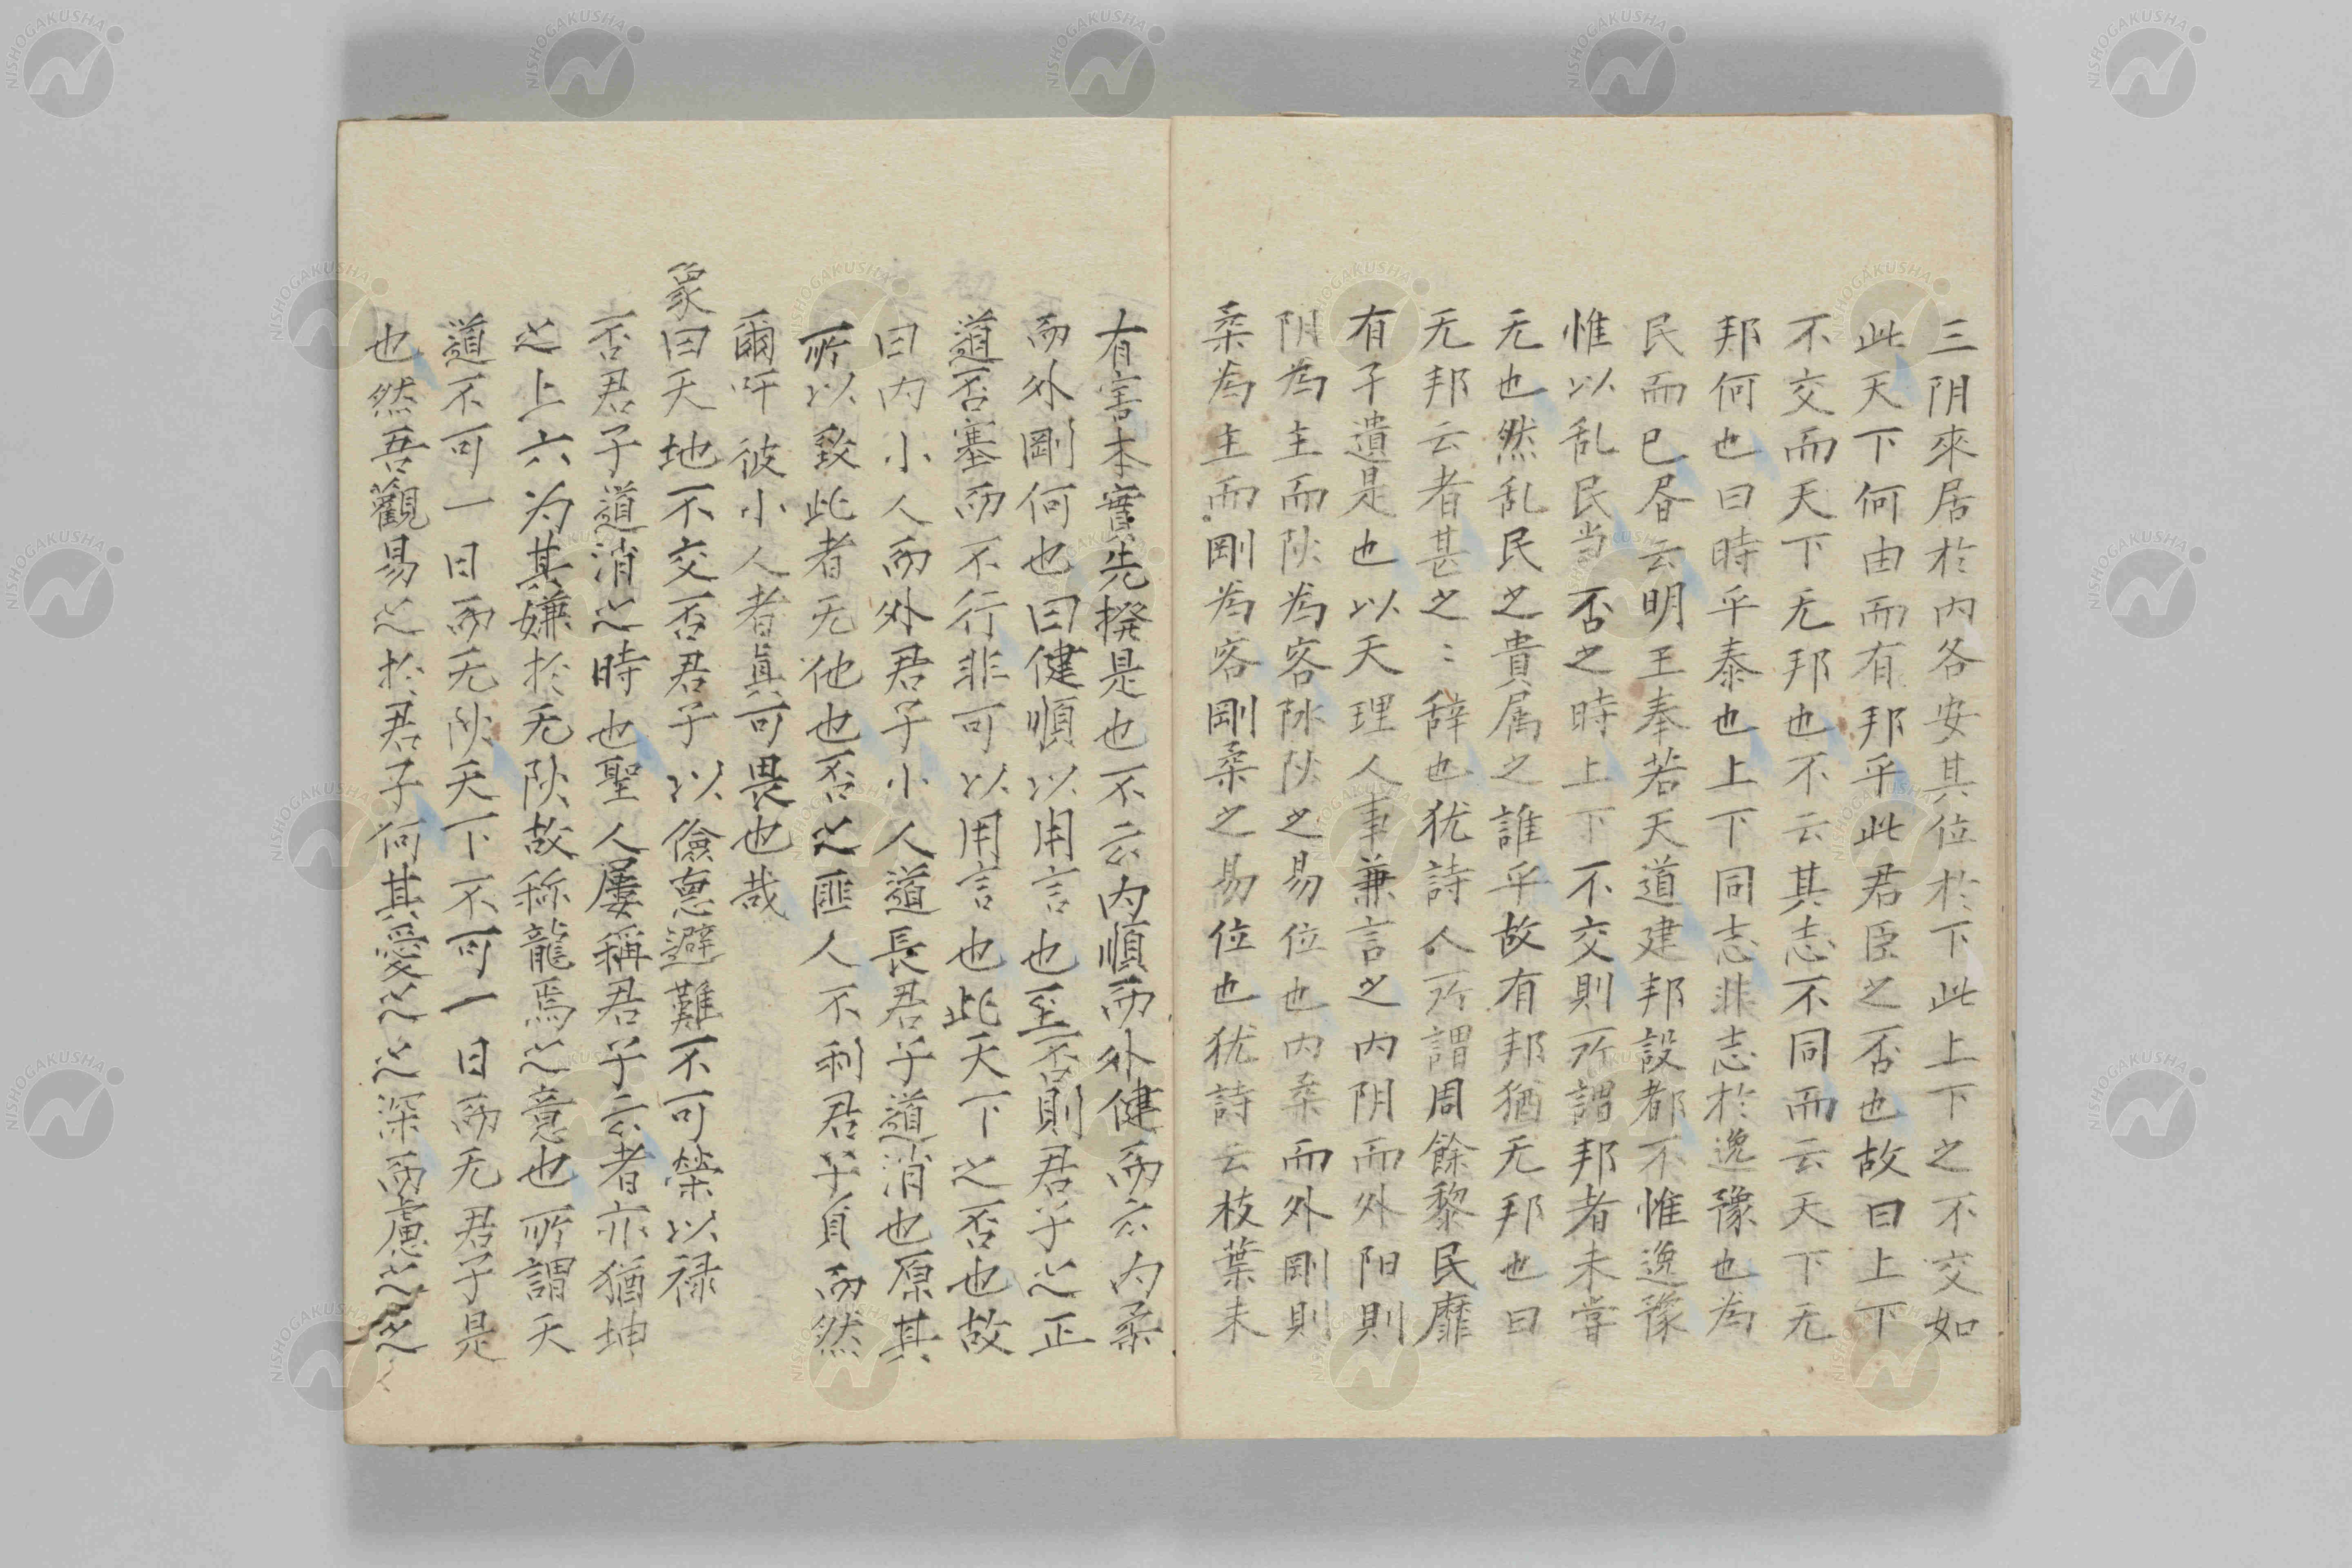 三阴來居於内各安其位於下此上下之不交如
此天下何由而有邦乎此君臣之否也故曰上下
不交而天下无邦也不云其志不同而云天下无
邦何也曰時乎泰也上下同志非志於逸豫也為
民而已昏云明王奉若天道建邦設都不惟逸豫
惟以乱民当否之時上下不交則所謂邦者未甞
无也然乱民之貴属之誰乎故有邦猶无邦也曰
无邦云者甚之〻辞也犹詩人所謂周餘黎民靡
有孑遺是也以天理人事兼言之内阴而外阳則
阴為主而阦為客阥阦之易位也内柔而外剛則
柔為主而剛為客剛柔之易位也犹詩云枝葉未
有害本實先撥是也不云内順而外健而云内柔
而外剛何也曰健順以用言也至否則君子之正
道否塞而不行非可以用言也此天下之否也故
曰内小人而外君子小人道長君子道消也原其
所以致此者无他也否之匪人不利君子貞而然
爾吁彼小人者真可畏也哉
象曰天地不交否君子以儉悳避難不可榮以禄
否君子道消之時也聖人屢稱君子云者亦猶坤
之上六为其嫌於无阦故称龍焉之意也所謂天
道不可一日而无阦天下不可一日而无君子是
也然吾觀易之於君子何其愛之之深而慮之之
NISHOGAKUSHA